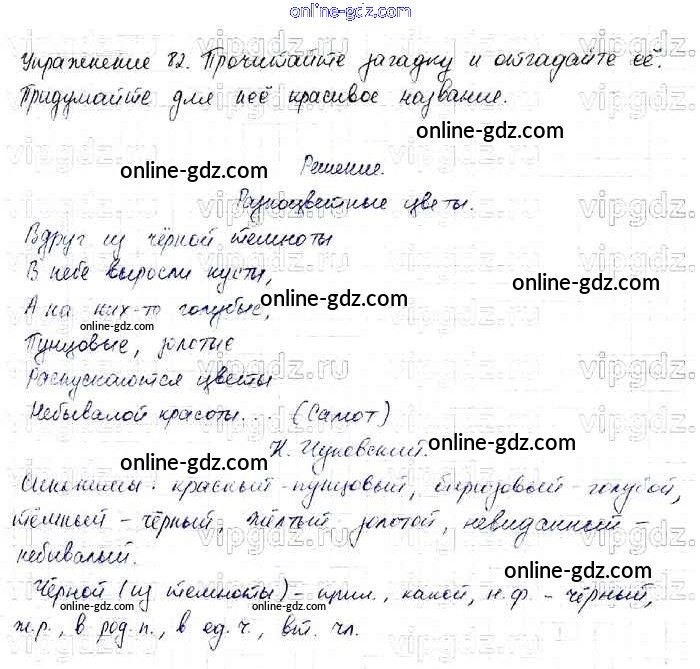 online-gdz.com
Упражнение 82. Прочитайте загадку и отгадайте её.
Придумайте для неё красивое название.
online-gdz.com
online-gdz.com
Решение.
Разноцветные цветы.
Вдруг из чёрной темноты
В небе выросли кусты,
online-gdz.com
А на них-то голубые,
online-gdz.com
online-gdz.com
Пунцовые, золотые
Распускаются цветы
Небывалой красоты... (Салют)
К. Чуковский.
online-gdz.com
online-gdz.com
Синонимы: красный - пунцовый, бирюзовый - голубой,
тёмный - чёрный, жёлтый - золотой, невиданный -
небывалый.
Чёрной (из темноты) - прил., какой, н.ф. - чёрный,
online-gdz.com
online-gdz.com
ж.р., в род.п., в ед.ч., вт. чл.
vipgdz.ru